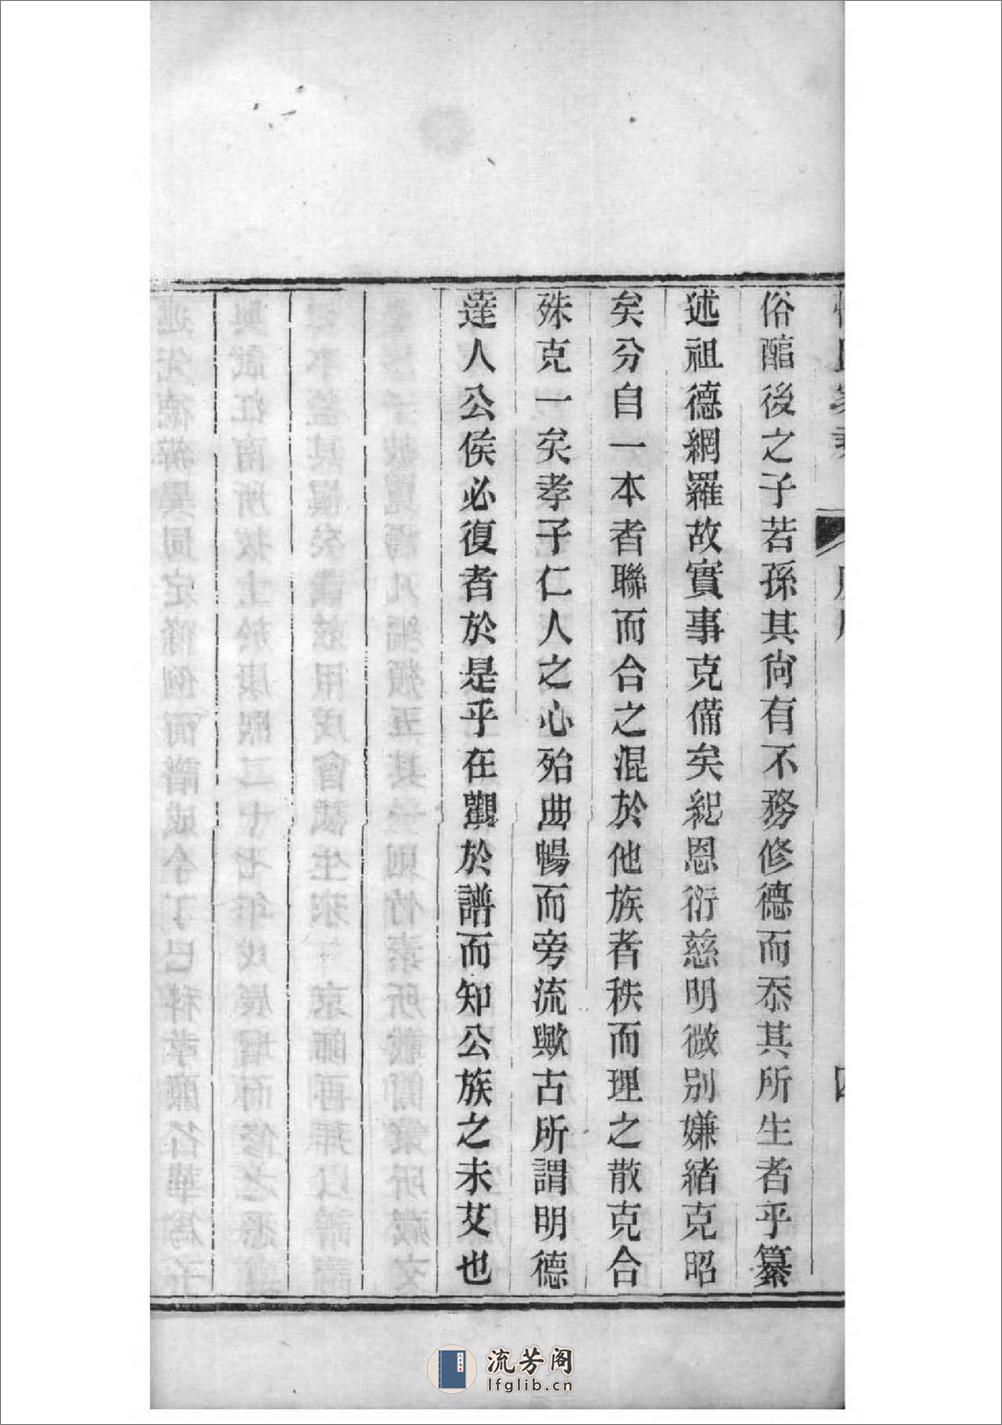 俗醕後之子若孫其尚有不務修德而忝其所生者乎纂
述祖德網羅故實事克備矣紀恩衍慈明微別嫌緒克昭
矣分自一本者聯而合之混於他族者秩而理之散克合
殊克一矣孝子仁人之心殆曲暢而旁流歟古所謂明德
達人公侯必復者於是乎在觀於譜而知公族之未艾也
流芳阁
lfglib.cn